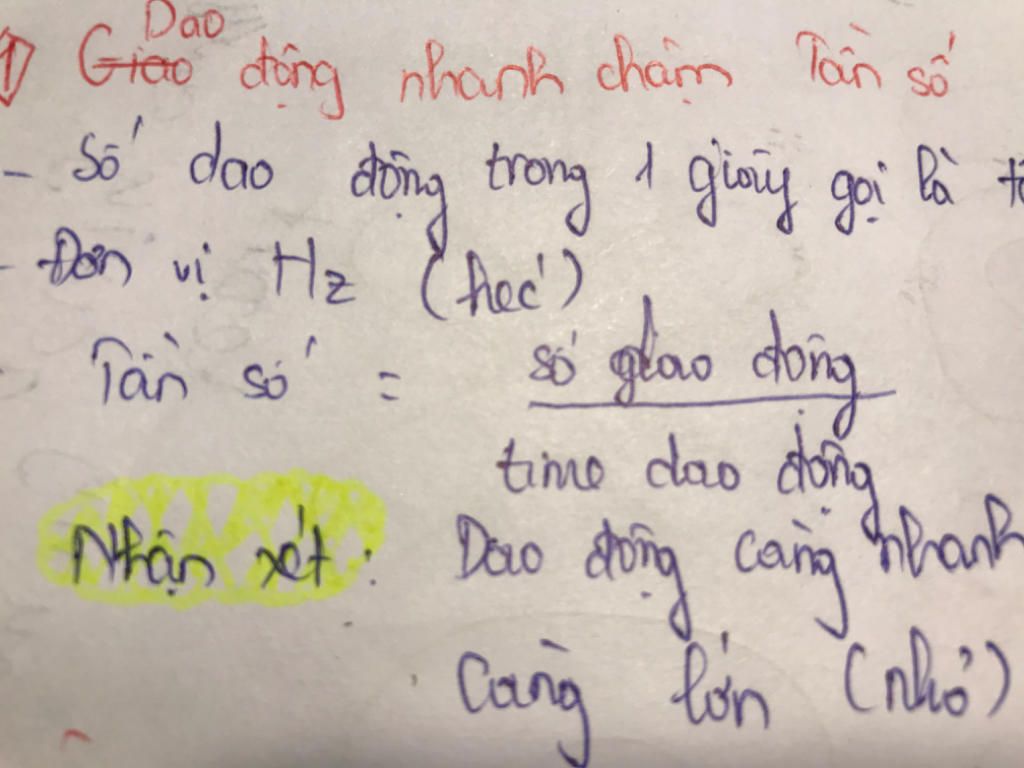 1) Dao
Giao động nhanh chậm Tần số
- Số dao động trong 1 giây gọi là
- Đơn vị Hz (héc)
Tần số = số dao động
time dao động
Nhận xét: Dao động càng nhanh
càng lớn (nhỏ)